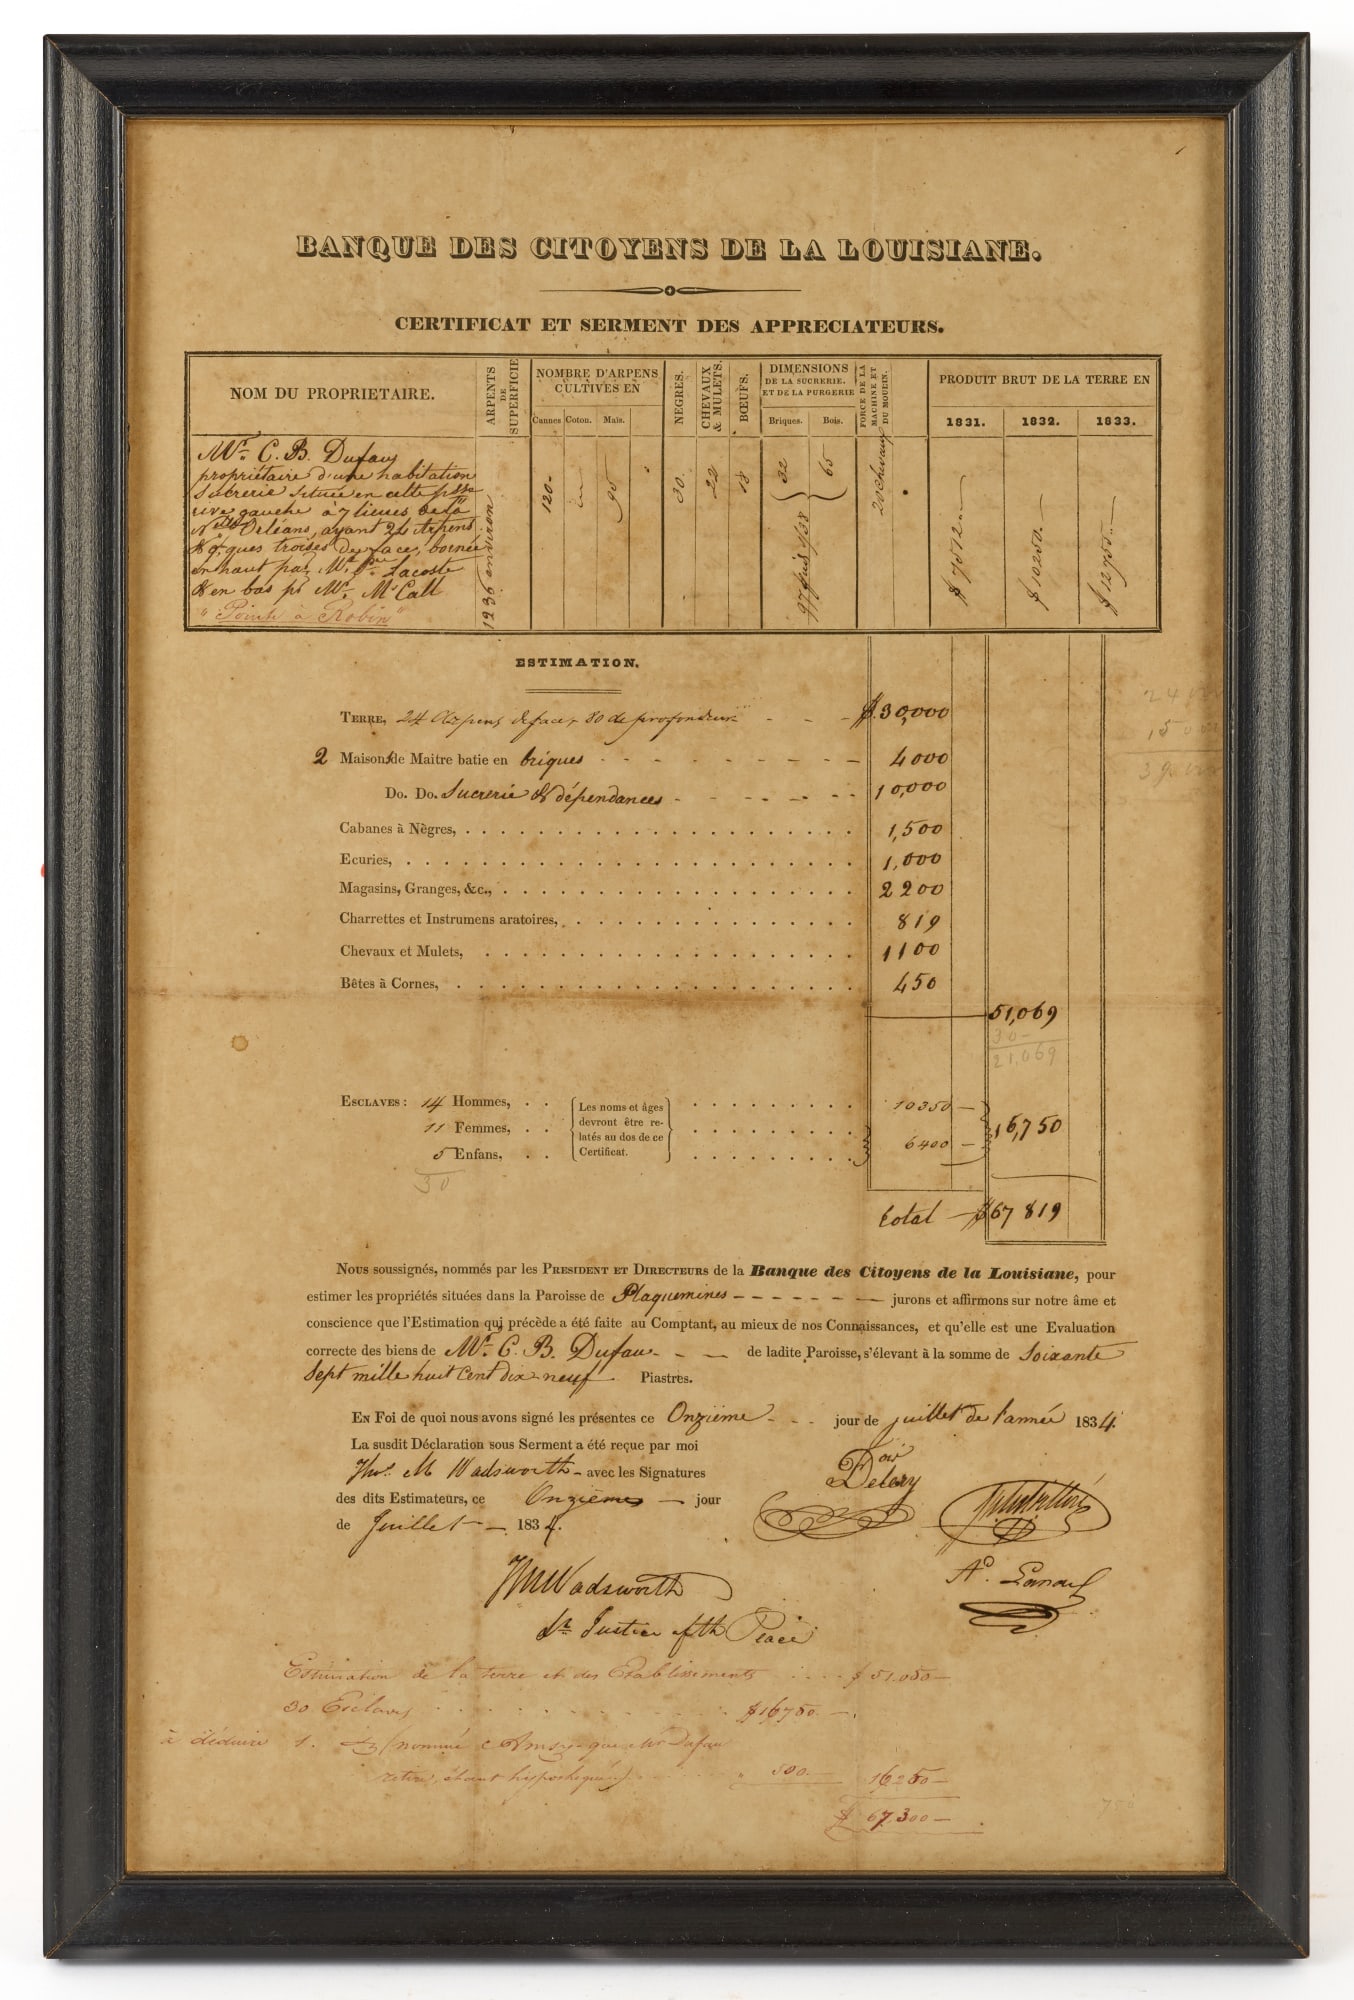 BANQUE DES CITOYENS DE LA LOUISIANE.
CERTIFICAT ET SERMENT DES APPRECIATEURS.
NOM DU PROPRIETAIRE.
ARPENTS DE SUPERFICIE
NOMBRE D'ARPENS CULTIVES EN
Cannes Coton. Mais.
NEGRES.
CHEVAUX & MULETS.
BŒUFS.
DIMENSIONS DE LA SUCRERIE. ET DE LA PURGERIE
Briques. Bois.
FORCE DE LA MACHINE ET DU MOULIN.
PRODUIT BRUT DE LA TERRE EN
1831. 1832. 1833.
Mr. C. B. Dufau
propriétaire d'une habitation
Sucrerie située en cette psse
rive gauche à 7 lieues de la
Nlle Orléans, ayant 24 Arpens
& qques troises de face, bornée
en haut par Mr. Lacoste
& en bas pr Mr. McCall
"Pointe à Robin"
1236 environ
120
95
30.
22
18
32
65
20 chevaux
$ 7512
$ 10250.
$ 12755
ESTIMATION.
TERRE, 24 Arpens de face, 80 de profondeur $.30,000
2 Maisons de Maitre batie en briques 4000
Do. Do. Sucrerie & dépendances 10,000
Cabanes à Nègres, 1,500
Ecuries, 1,000
Magasins, Granges, &c., 2200
Charrettes et Instrumens aratoires, 819
Chevaux et Mulets, 1100
Bêtes à Cornes, 450
51,069
30
21,069
ESCLAVES: 14 Hommes, 10350
11 Femmes, 6400
5 Enfans,
Les noms et âges
devront être re-
latés au dos de ce
Certificat.
16,750
30
total $67 819
Nous soussignés, nommés par les PRESIDENT ET DIRECTEURS de la Banque des Citoyens de la Louisiane, pour
estimer les propriétés situées dans la Paroisse de Plaquemines jurons et affirmons sur notre âme et
conscience que l'Estimation qui précède a été faite au Comptant, au mieux de nos Connaissances, et qu'elle est une Evaluation
correcte des biens de Mr. C. B. Dufau de ladite Paroisse, s'élevant à la somme de Soixante
Sept mille huit Cent dix neuf Piastres.
EN Foi de quoi nous avons signé les présentes ce Onzième jour de juillet de l'année 1834.
La susdit Déclaration sous Serment a été reçue par moi
Thos. M Wadsworth avec les Signatures
des dits Estimateurs, ce Onzième jour
de Juillet 1834.
Delery
ThMWadsworth
Justice of th Peace
Estimation de la terre et des Etablissements $ 51.050
30 Esclaves $16750
à déduire 1. (nommé que Mr Dufau
retire, étant hypothéqué) 500 16250
$ 67.300